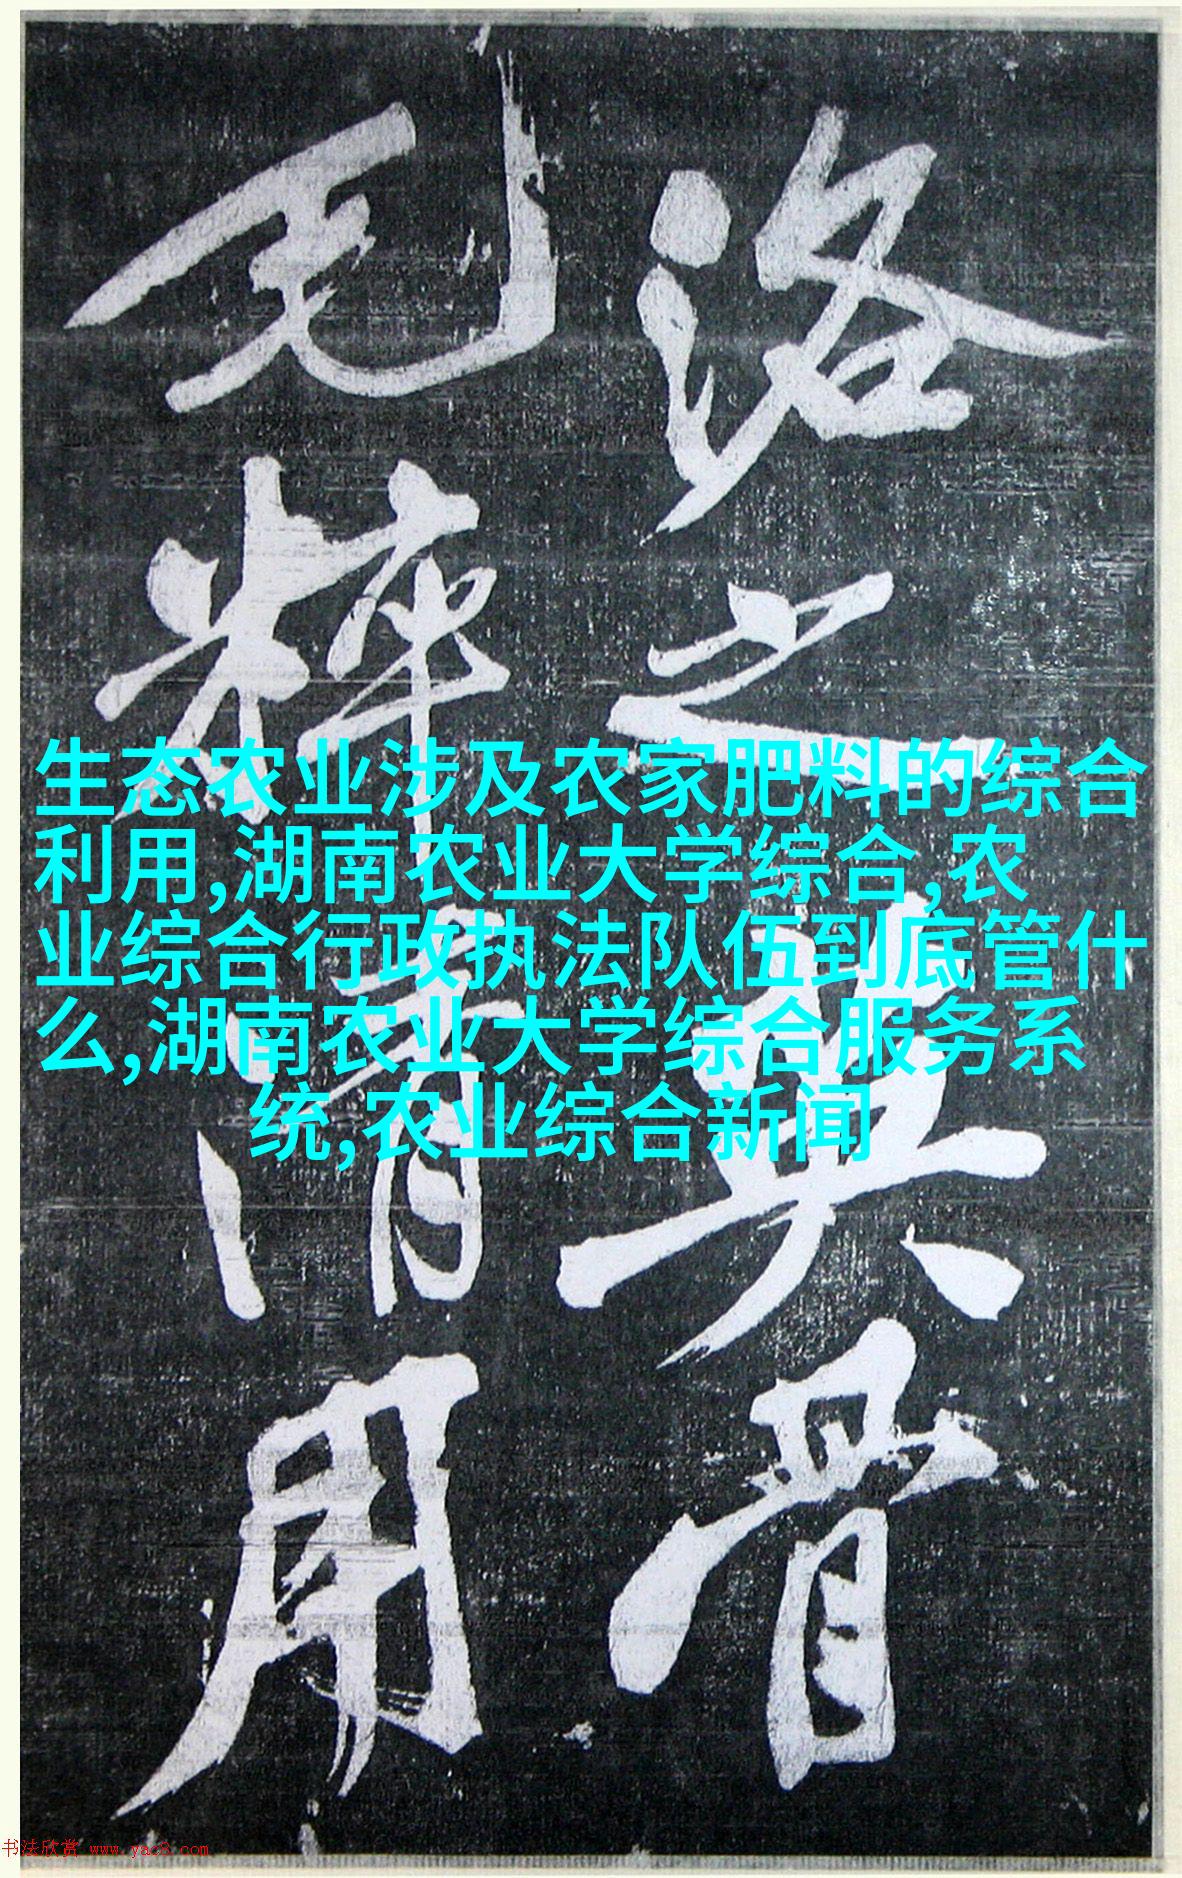 洛之英骨
毛粹清用
生态农业涉及农家肥料的综合
利用,湖南农业大学综合,农
业综合行政执法队伍到底管什
么,湖南农业大学综合服务系
统,农业综合新闻
书法欣赏 www.yac8.com